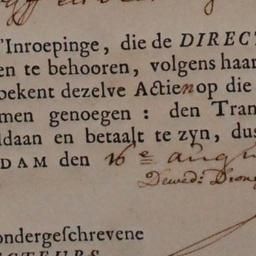 'Inroepinge, die de DIRECT
en te behooren, volgens haar
bekent dezelve Actien op die
men genoegen: den Tran
ldaan en betaalt te zyn, dus
DAM den 16e augu
Dewed:
ondergeſchrevene
ACTEURS